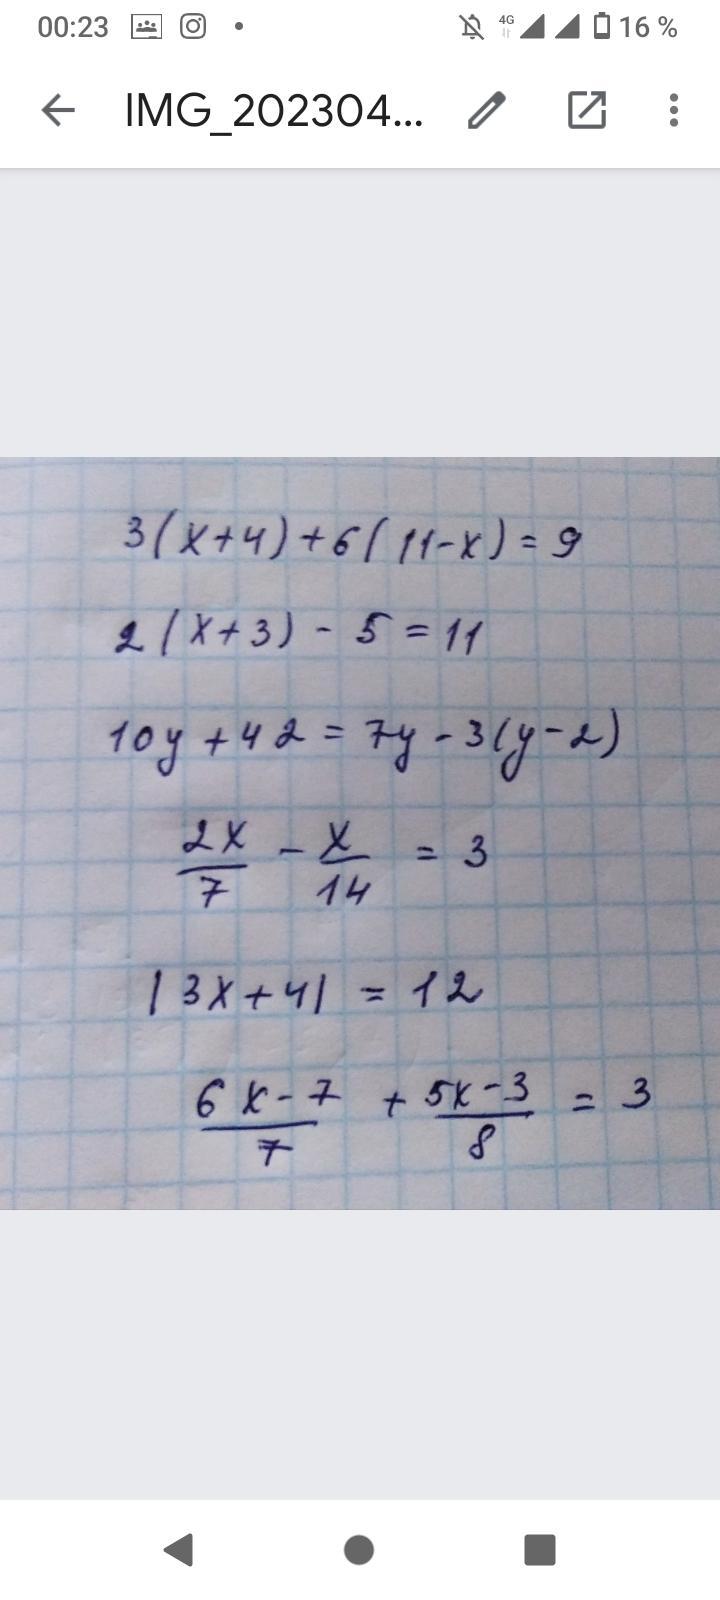 00:23 4G 16 %
IMG_202304...
3(x+4)+6(11-x)=9
2(x+3)-5=11
10y+42=7y-3(y-2)
2x/7 - x/14 = 3
|3x+4|=12
6x-7/7 + 5x-3/8 = 3